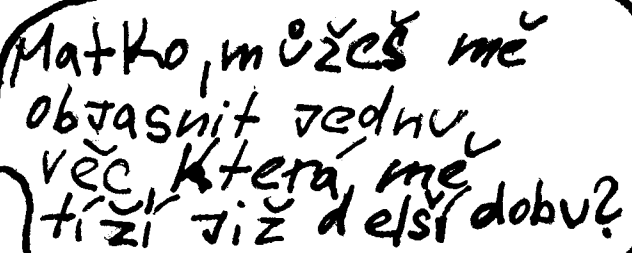 Matko, můžeš mě
objasnit jednu
věc která mě
tíží již delší dobu?